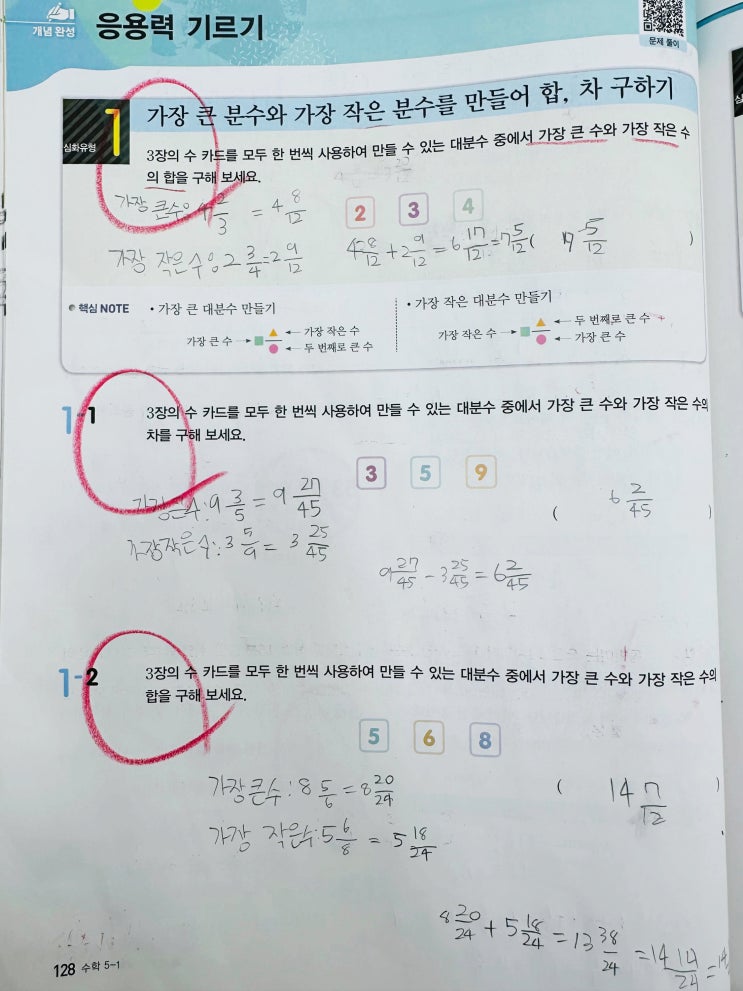 개념 완성
응용력 기르기
문제 풀이
심화유형
1
가장 큰 분수와 가장 작은 분수를 만들어 합, 차 구하기
3장의 수 카드를 모두 한 번씩 사용하여 만들 수 있는 대분수 중에서 가장 큰 수와 가장 작은 수
의 합을 구해 보세요.
가장 큰수은 4 2/3 = 4 8/12
2 3 4
가장 작은수은 2 3/4 = 2 9/12
4 8/12 + 2 9/12 = 6 17/12 = 7 5/12 ( 7 5/12 )
핵심 NOTE
• 가장 큰 대분수 만들기
가장 큰 수 → ■ ▲/● ← 가장 작은 수
← 두 번째로 큰 수
• 가장 작은 대분수 만들기
가장 작은 수 → ■ ▲/● ← 두 번째로 큰 수
← 가장 큰 수
1-1
3장의 수 카드를 모두 한 번씩 사용하여 만들 수 있는 대분수 중에서 가장 큰 수와 가장 작은 수의
차를 구해 보세요.
3 5 9
가장큰수: 9 3/5 = 9 27/45
( 6 2/45 )
가장작은수: 3 5/9 = 3 25/45
9 27/45 - 3 25/45 = 6 2/45
1-2
3장의 수 카드를 모두 한 번씩 사용하여 만들 수 있는 대분수 중에서 가장 큰 수와 가장 작은 수의
합을 구해 보세요.
5 6 8
가장큰수: 8 5/6 = 8 20/24
( 14 7/12 )
가장 작은수: 5 6/8 = 5 18/24
8 20/24 + 5 18/24 = 13 38/24 = 14 14/24 =
128 수학 5-1